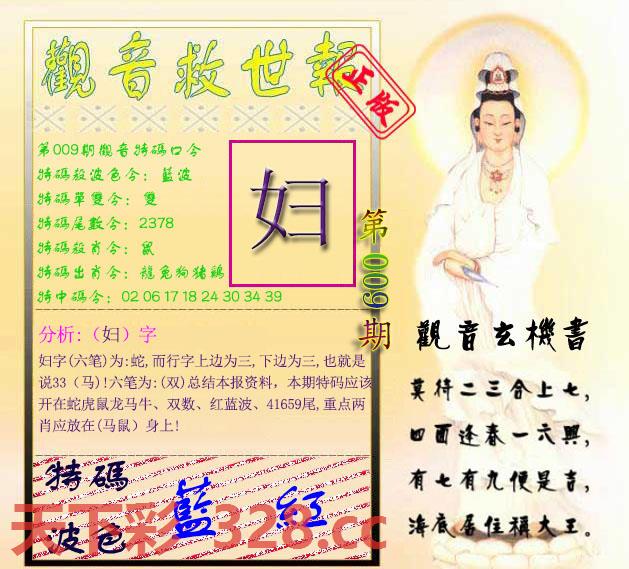 觀音救世報
正版
第009期觀音特碼口令
特碼殺波色令：藍波
特碼單雙令：雙
特碼尾數令：2378
特碼殺肖令：鼠
特碼出肖令：龍兔狗猪鷄
特中碼令：02 06 17 18 24 30 34 39
妇
第009期
分析:（妇）字
妇字(六笔)为:蛇,而行字上边为三,下边为三,也就是
说33（马)!六笔为:(双)总结本报资料，本期特码应该
开在蛇虎鼠龙马牛、双数、红蓝波、41659尾,重点两
肖应放在(马鼠）身上!
特碼
波色
藍 紅
天下彩 328.cc
觀音玄機書
莫待二三合上七，
四面逢春一六興，
有七有九便是吉，
海底居住稱大王。